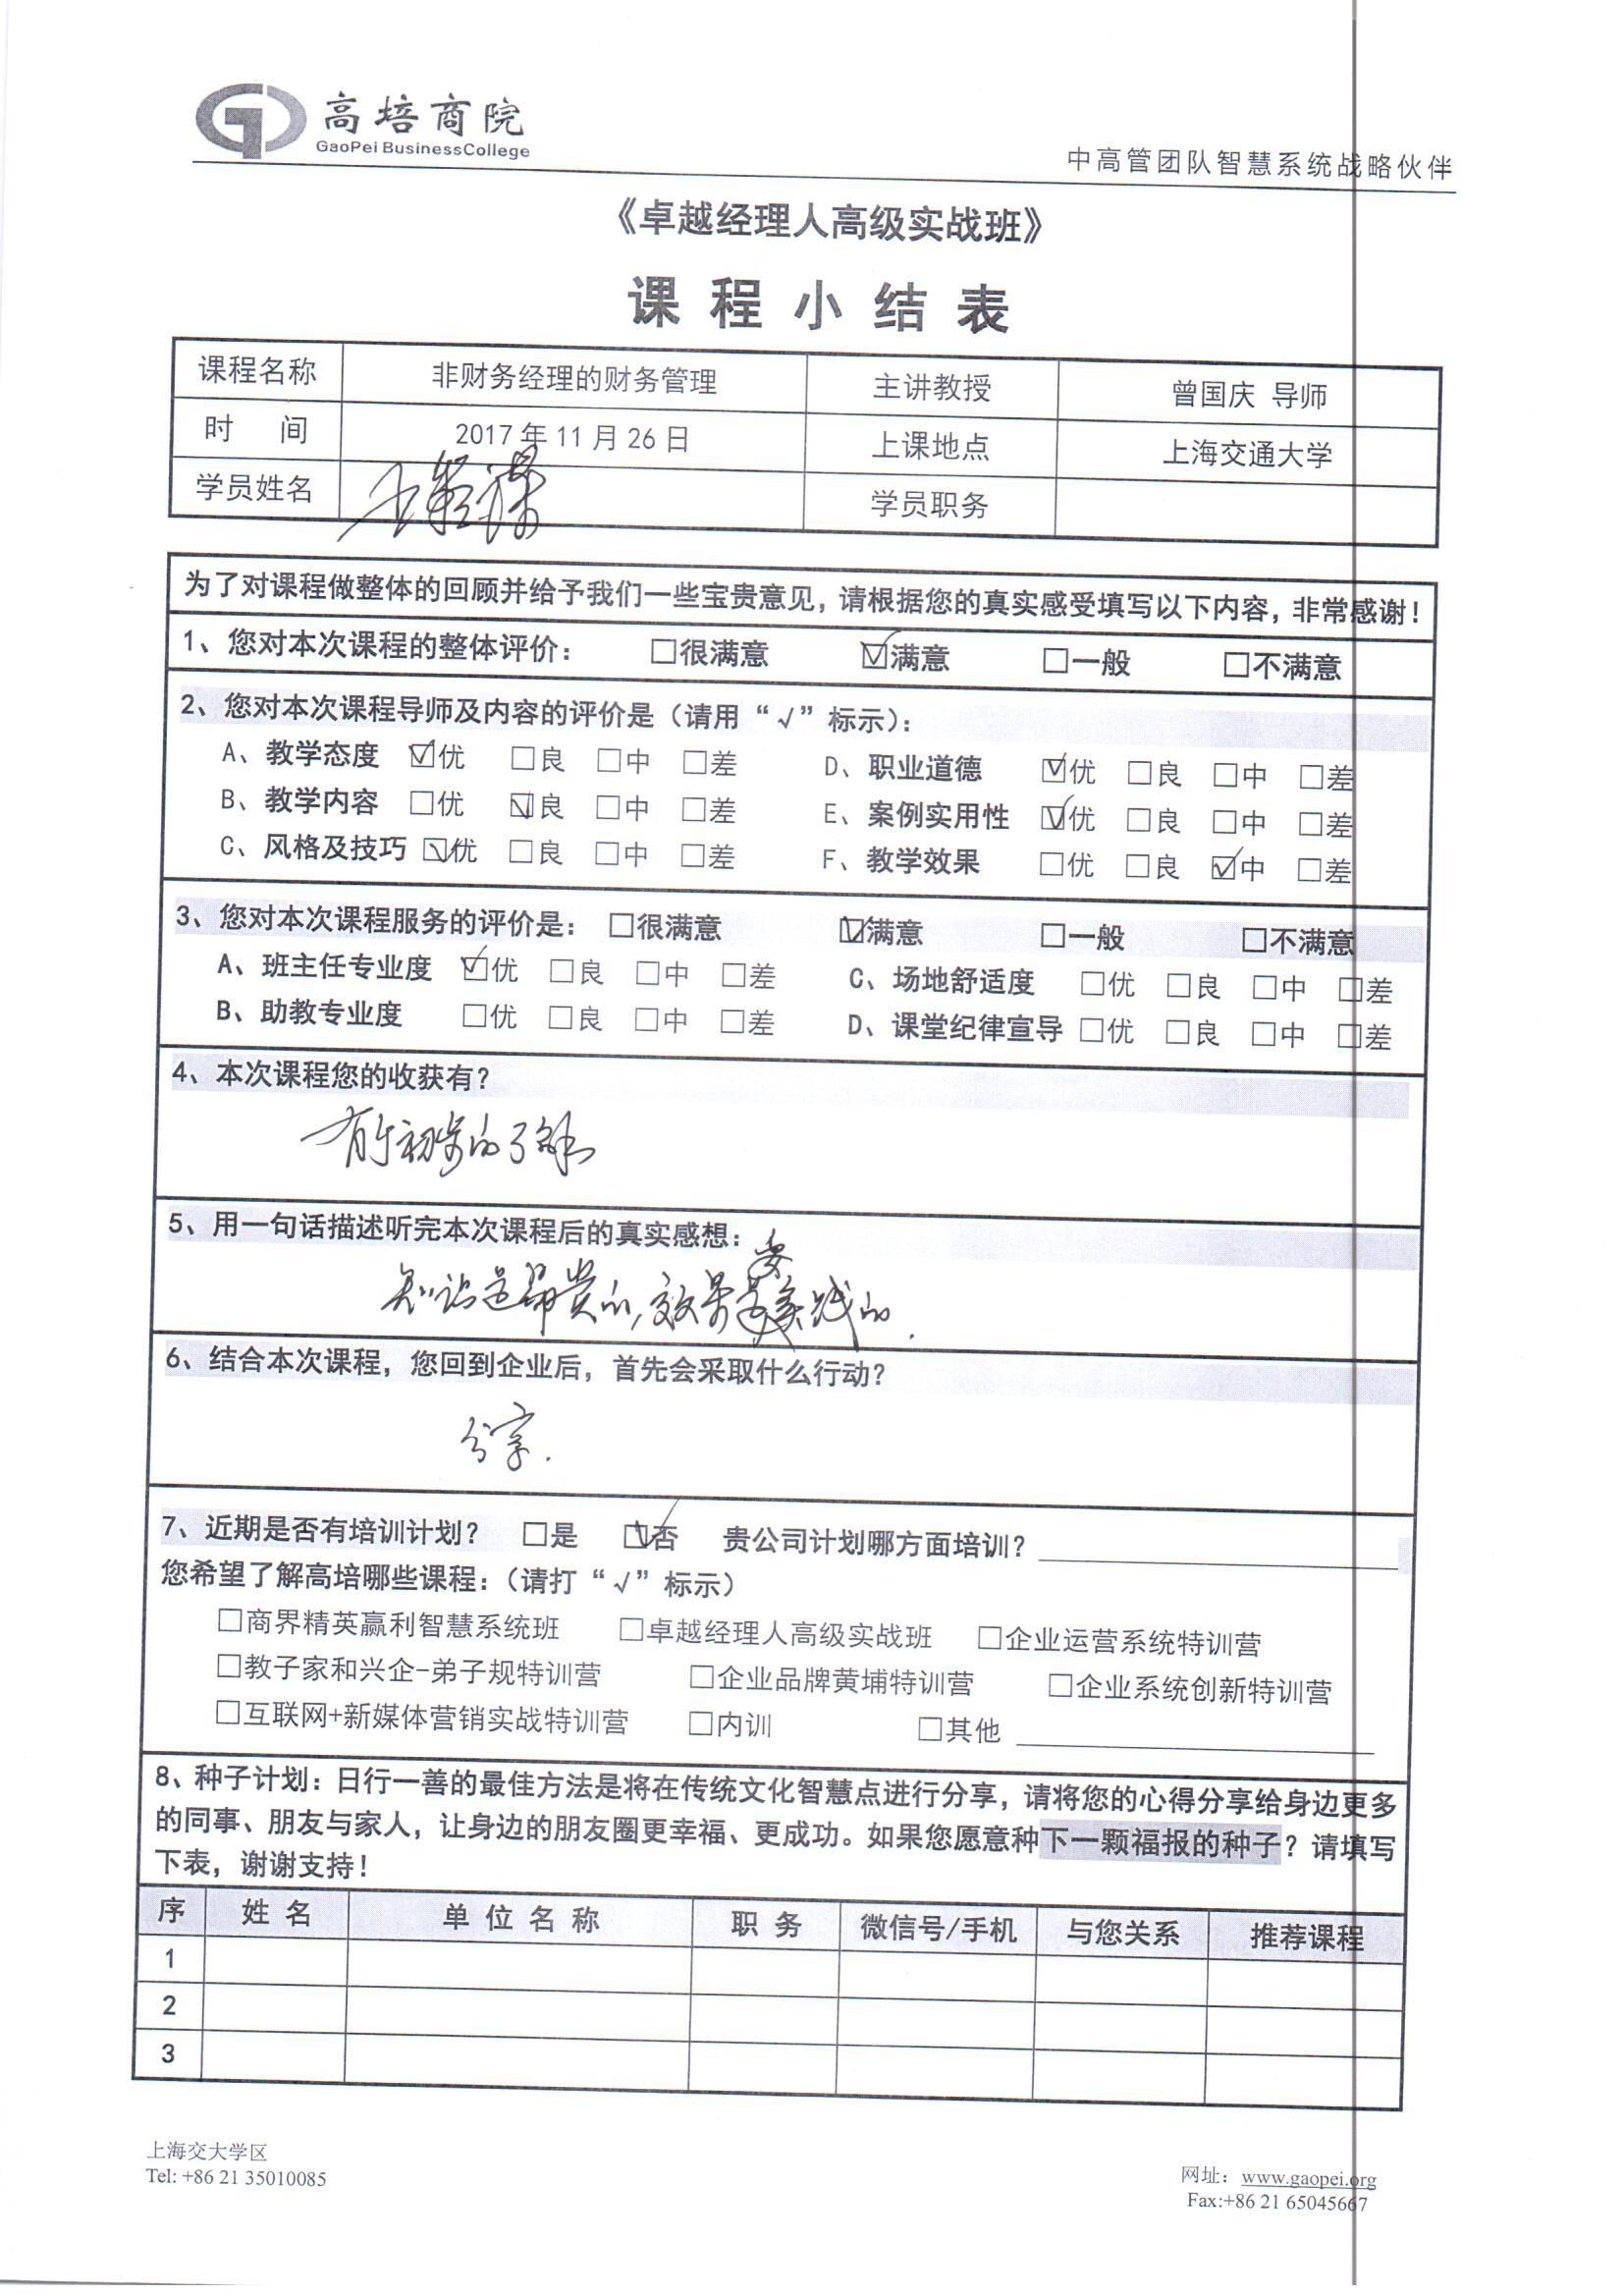 高培商院
GaoPei BusinessCollege
中高管团队智慧系统战略伙伴
《卓越经理人高级实战班》
课程小结表
课程名称 非财务经理的财务管理 主讲教授 曾国庆 导师
时 间 2017年11月26日 上课地点 上海交通大学
学员姓名 王 学员职务
为了对课程做整体的回顾并给予我们一些宝贵意见，请根据您的真实感受填写以下内容，非常感谢！
1、您对本次课程的整体评价： □很满意 ☑满意 □一般 □不满意
2、您对本次课程导师及内容的评价是（请用“√”标示）：
A、教学态度 ☑优 □良 □中 □差 D、职业道德 ☑优 □良 □中 □差
B、教学内容 □优 ☑良 □中 □差 E、案例实用性 ☑优 □良 □中 □差
C、风格及技巧 ☑优 □良 □中 □差 F、教学效果 □优 □良 ☑中 □差
3、您对本次课程服务的评价是： □很满意 ☑满意 □一般 □不满意
A、班主任专业度 ☑优 □良 □中 □差 C、场地舒适度 □优 □良 □中 □差
B、助教专业度 □优 □良 □中 □差 D、课堂纪律宣导 □优 □良 □中 □差
4、本次课程您的收获有？
有个初步的了解
5、用一句话描述听完本次课程后的真实感想：
知识是昂贵的，效果是要实践的.
6、结合本次课程，您回到企业后，首先会采取什么行动？
分享.
7、近期是否有培训计划？ □是 ☑否 贵公司计划哪方面培训？
您希望了解高培哪些课程：（请打“√”标示）
□商界精英赢利智慧系统班 □卓越经理人高级实战班 □企业运营系统特训营
□教子家和兴企-弟子规特训营 □企业品牌黄埔特训营 □企业系统创新特训营
□互联网+新媒体营销实战特训营 □内训 □其他
8、种子计划：日行一善的最佳方法是将在传统文化智慧点进行分享，请将您的心得分享给身边更多
的同事、朋友与家人，让身边的朋友圈更幸福、更成功。如果您愿意种下一颗福报的种子？请填写
下表，谢谢支持！
序 姓名 单位名称 职务 微信号/手机 与您关系 推荐课程
1
2
3
上海交大学区
Tel: +86 21 35010085
网址：www.gaopei.org
Fax:+86 21 65045667